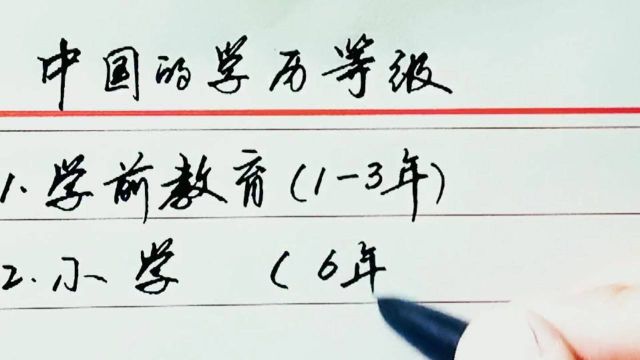 中国的学历等级
1.学前教育(1-3年)
2.小学 (6年